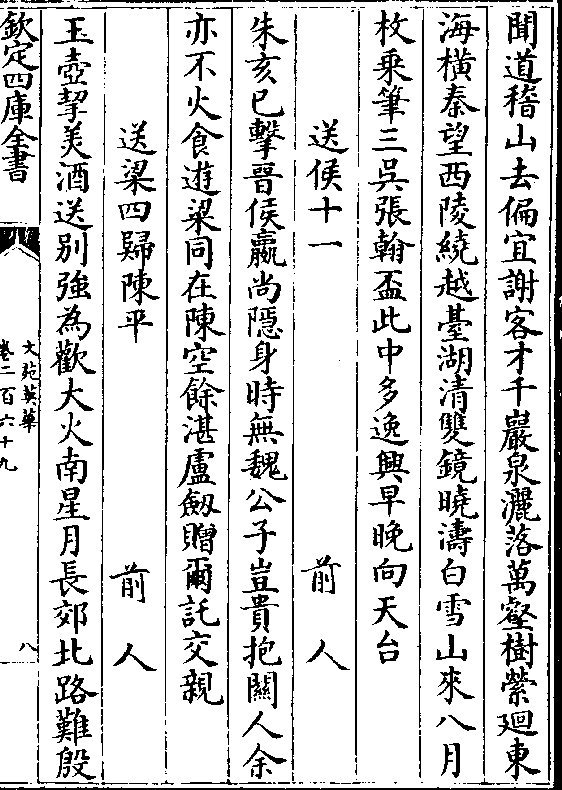 聞道稽山去偏宜謝客才千巖泉灑落萬壑樹縈廻東
海橫秦望西陵繞越臺湖清雙鏡曉濤白雪山來八月
枚乗筆三吳張翰盃此中多逸興早晚向天台
送侯十一 前人
朱亥已擊晉侯嬴尚隱身時無魏公子豈貴抱關人余
亦不火食遊梁同在陳空餘湛盧劔贈爾託交親
送梁四歸陳平 前人
玉壺挈美酒送別強為歡大火南星月長郊北路難殷
欽定四庫全書
文苑英華
卷二百六十九
八